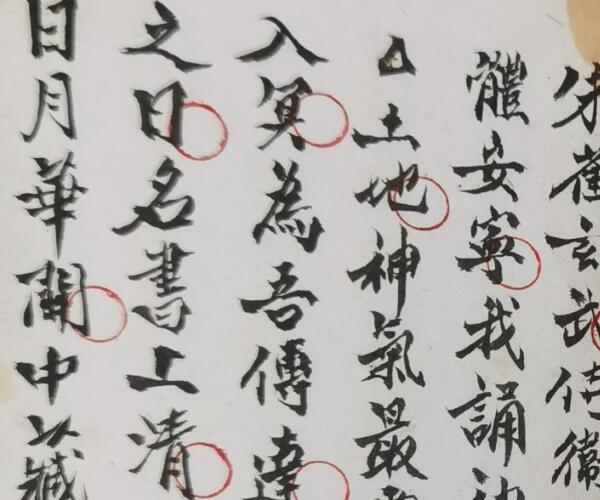 朱雀玄武侍衛
體安寧我誦
△土地神氣最
入冥為吾傳達
之日名書上清
日月華開中藏